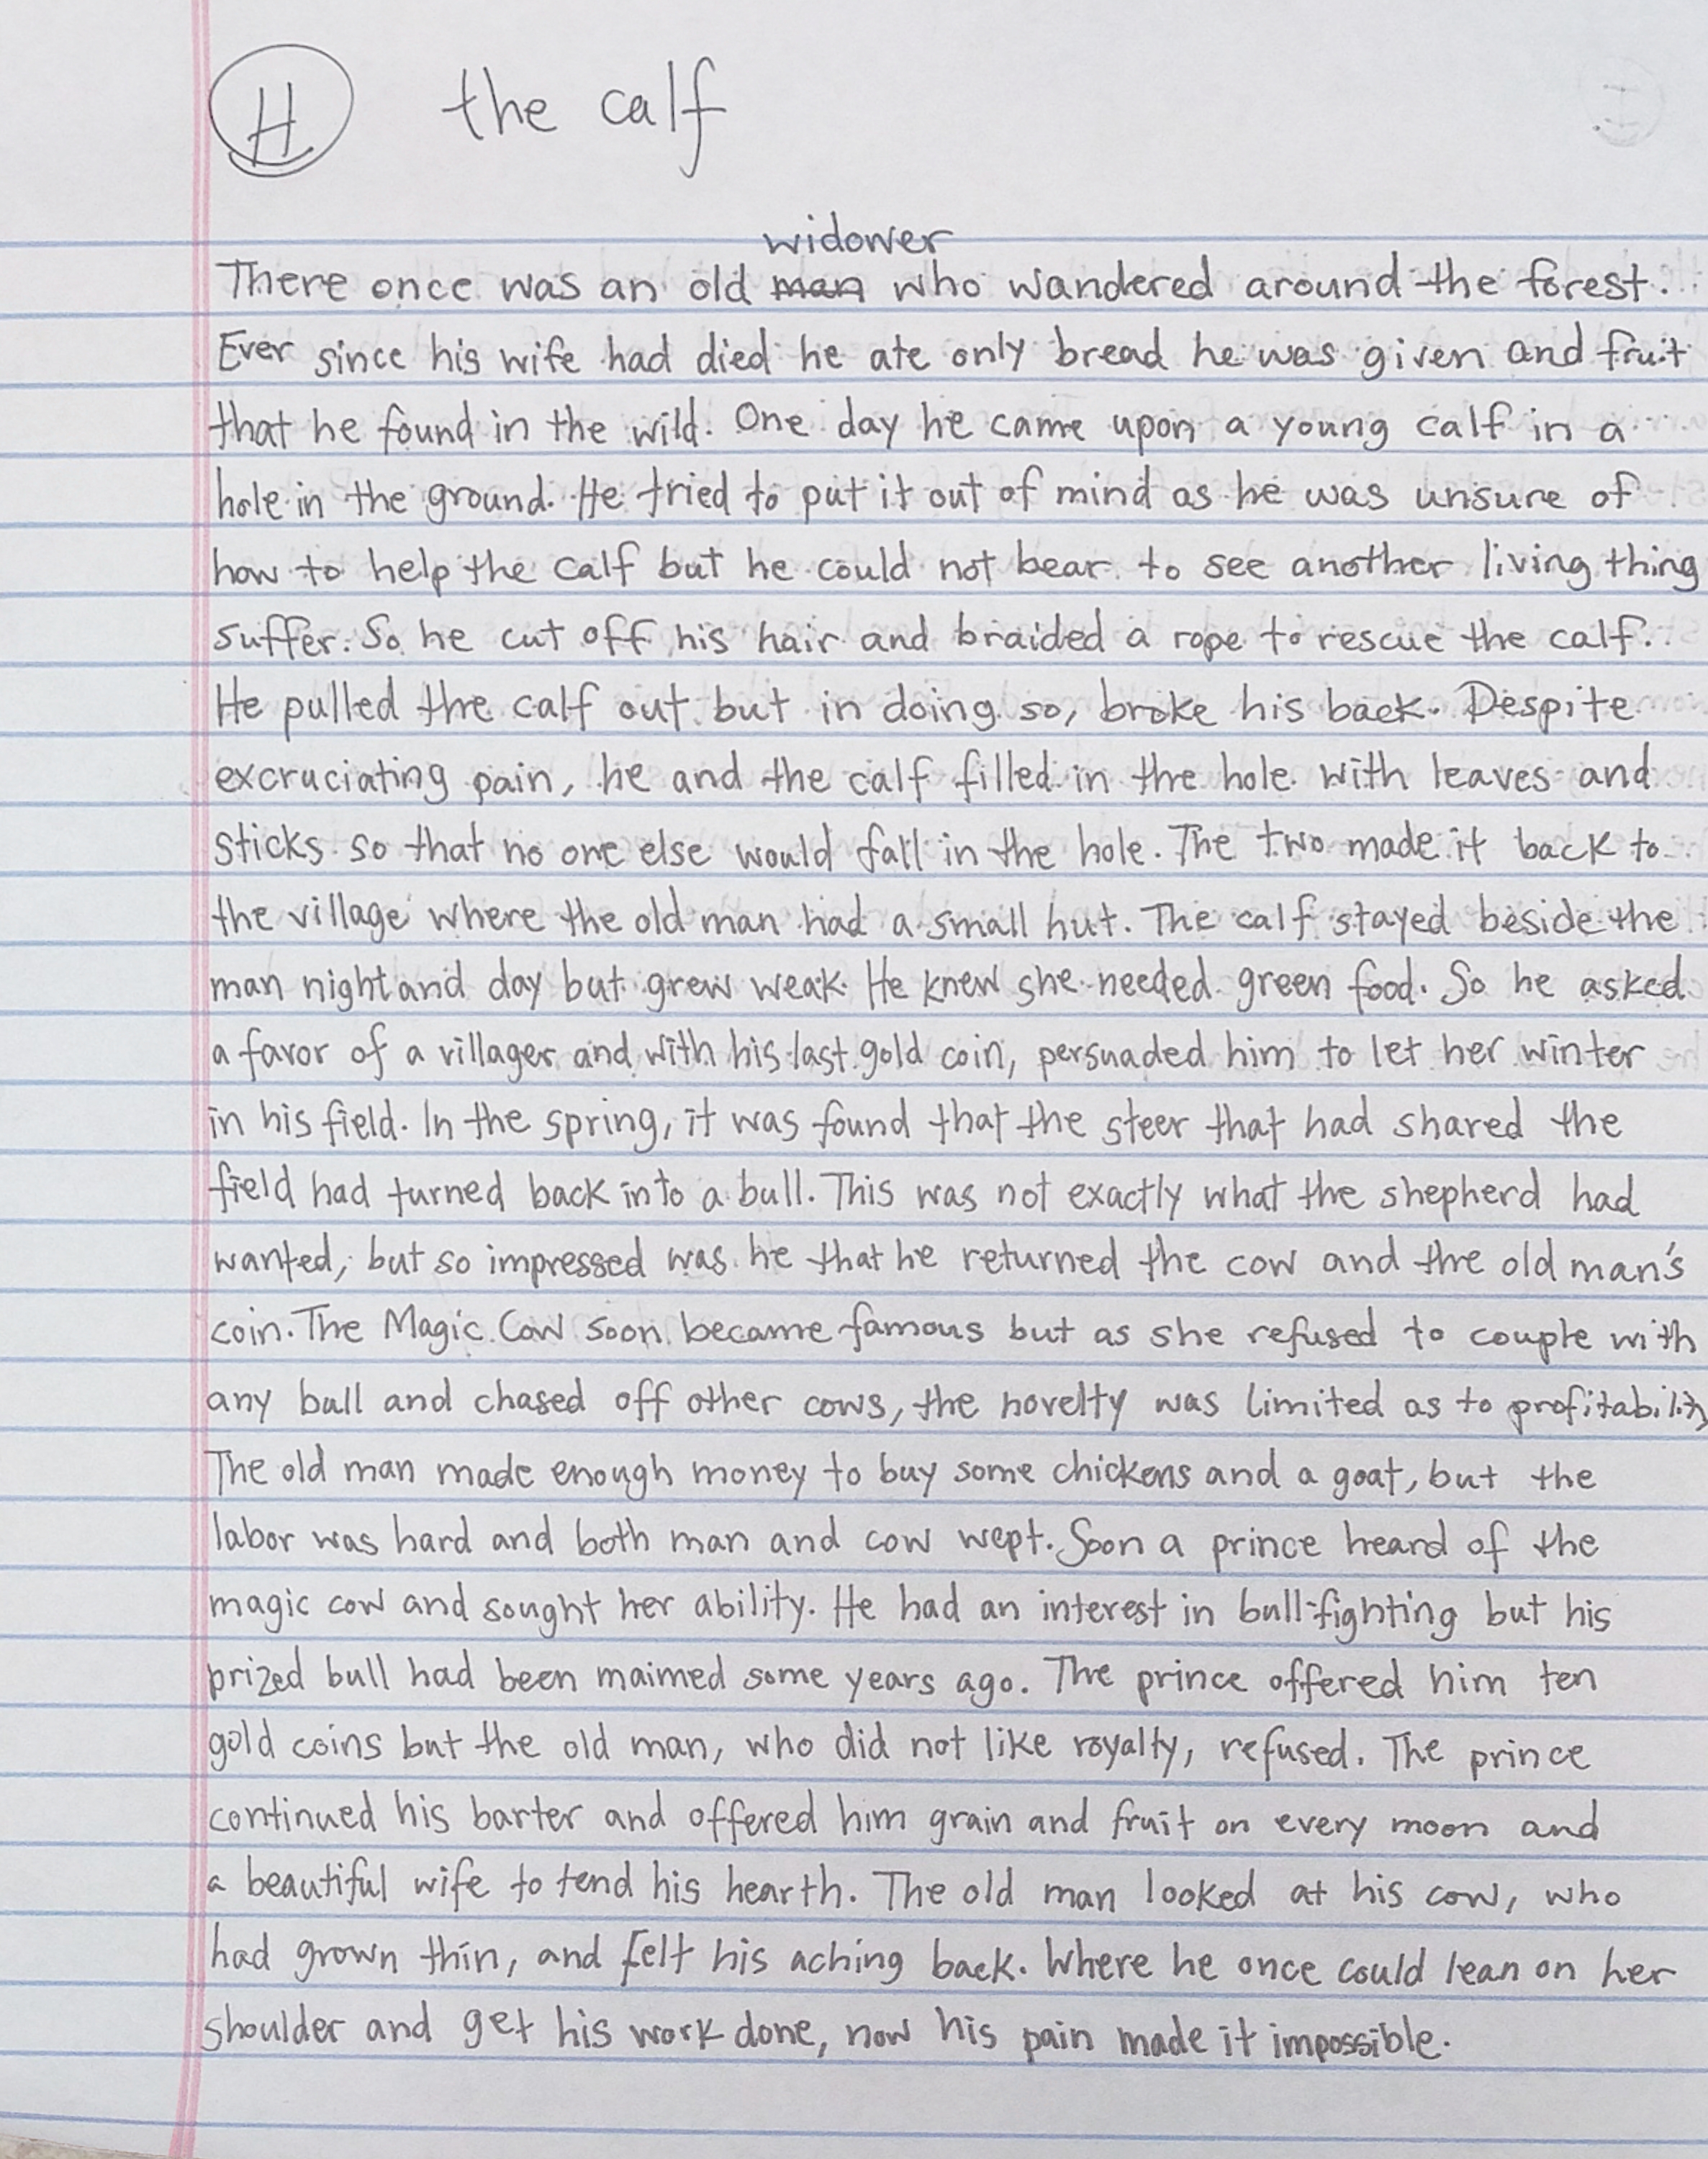 H the calf
widower
There once was an old man who wandered around the forest.
Ever since his wife had died he ate only bread he was given and fruit
that he found in the wild. One day he came upon a young calf in a
hole in the ground. He tried to put it out of mind as he was unsure of
how to help the calf but he could not bear to see another living thing
suffer. So he cut off his hair and braided a rope to rescue the calf.
He pulled the calf out but in doing so, broke his back. Despite
excruciating pain, he and the calf filled in the hole with leaves and
sticks so that no one else would fall in the hole. The two made it back to
the village where the old man had a small hut. The calf stayed beside the
man night and day but grew weak. He knew she needed green food. So he asked
a favor of a villager and with his last gold coin, persuaded him to let her winter
in his field. In the spring, it was found that the steer that had shared the
field had turned back into a bull. This was not exactly what the shepherd had
wanted, but so impressed was he that he returned the cow and the old man's
coin. The Magic Cow soon became famous but as she refused to couple with
any bull and chased off other cows, the novelty was limited as to profitability
The old man made enough money to buy some chickens and a goat, but the
labor was hard and both man and cow wept. Soon a prince heard of the
magic cow and sought her ability. He had an interest in bull-fighting but his
prized bull had been maimed some years ago. The prince offered him ten
gold coins but the old man, who did not like royalty, refused. The prince
continued his barter and offered him grain and fruit on every moon and
a beautiful wife to tend his hearth. The old man looked at his cow, who
had grown thin, and felt his aching back. Where he once could lean on her
shoulder and get his work done, now his pain made it impossible.